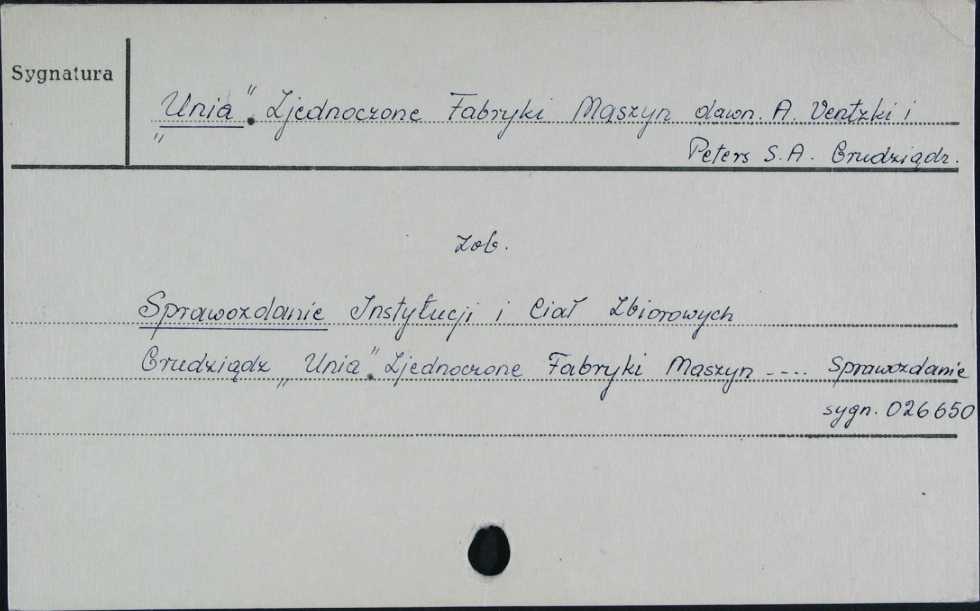 Sygnatura
„Unia”. Zjednoczone Fabryki Maszyn dawn. A. Ventzki i
Peters S.A. Grudziądz.
Zob.
Sprawozdanie Instytucji i Ciał Zbiorowych
Grudziądz „Unia”. Zjednoczone Fabryki Maszyn .... Sprawozdanie
sygn. 026650